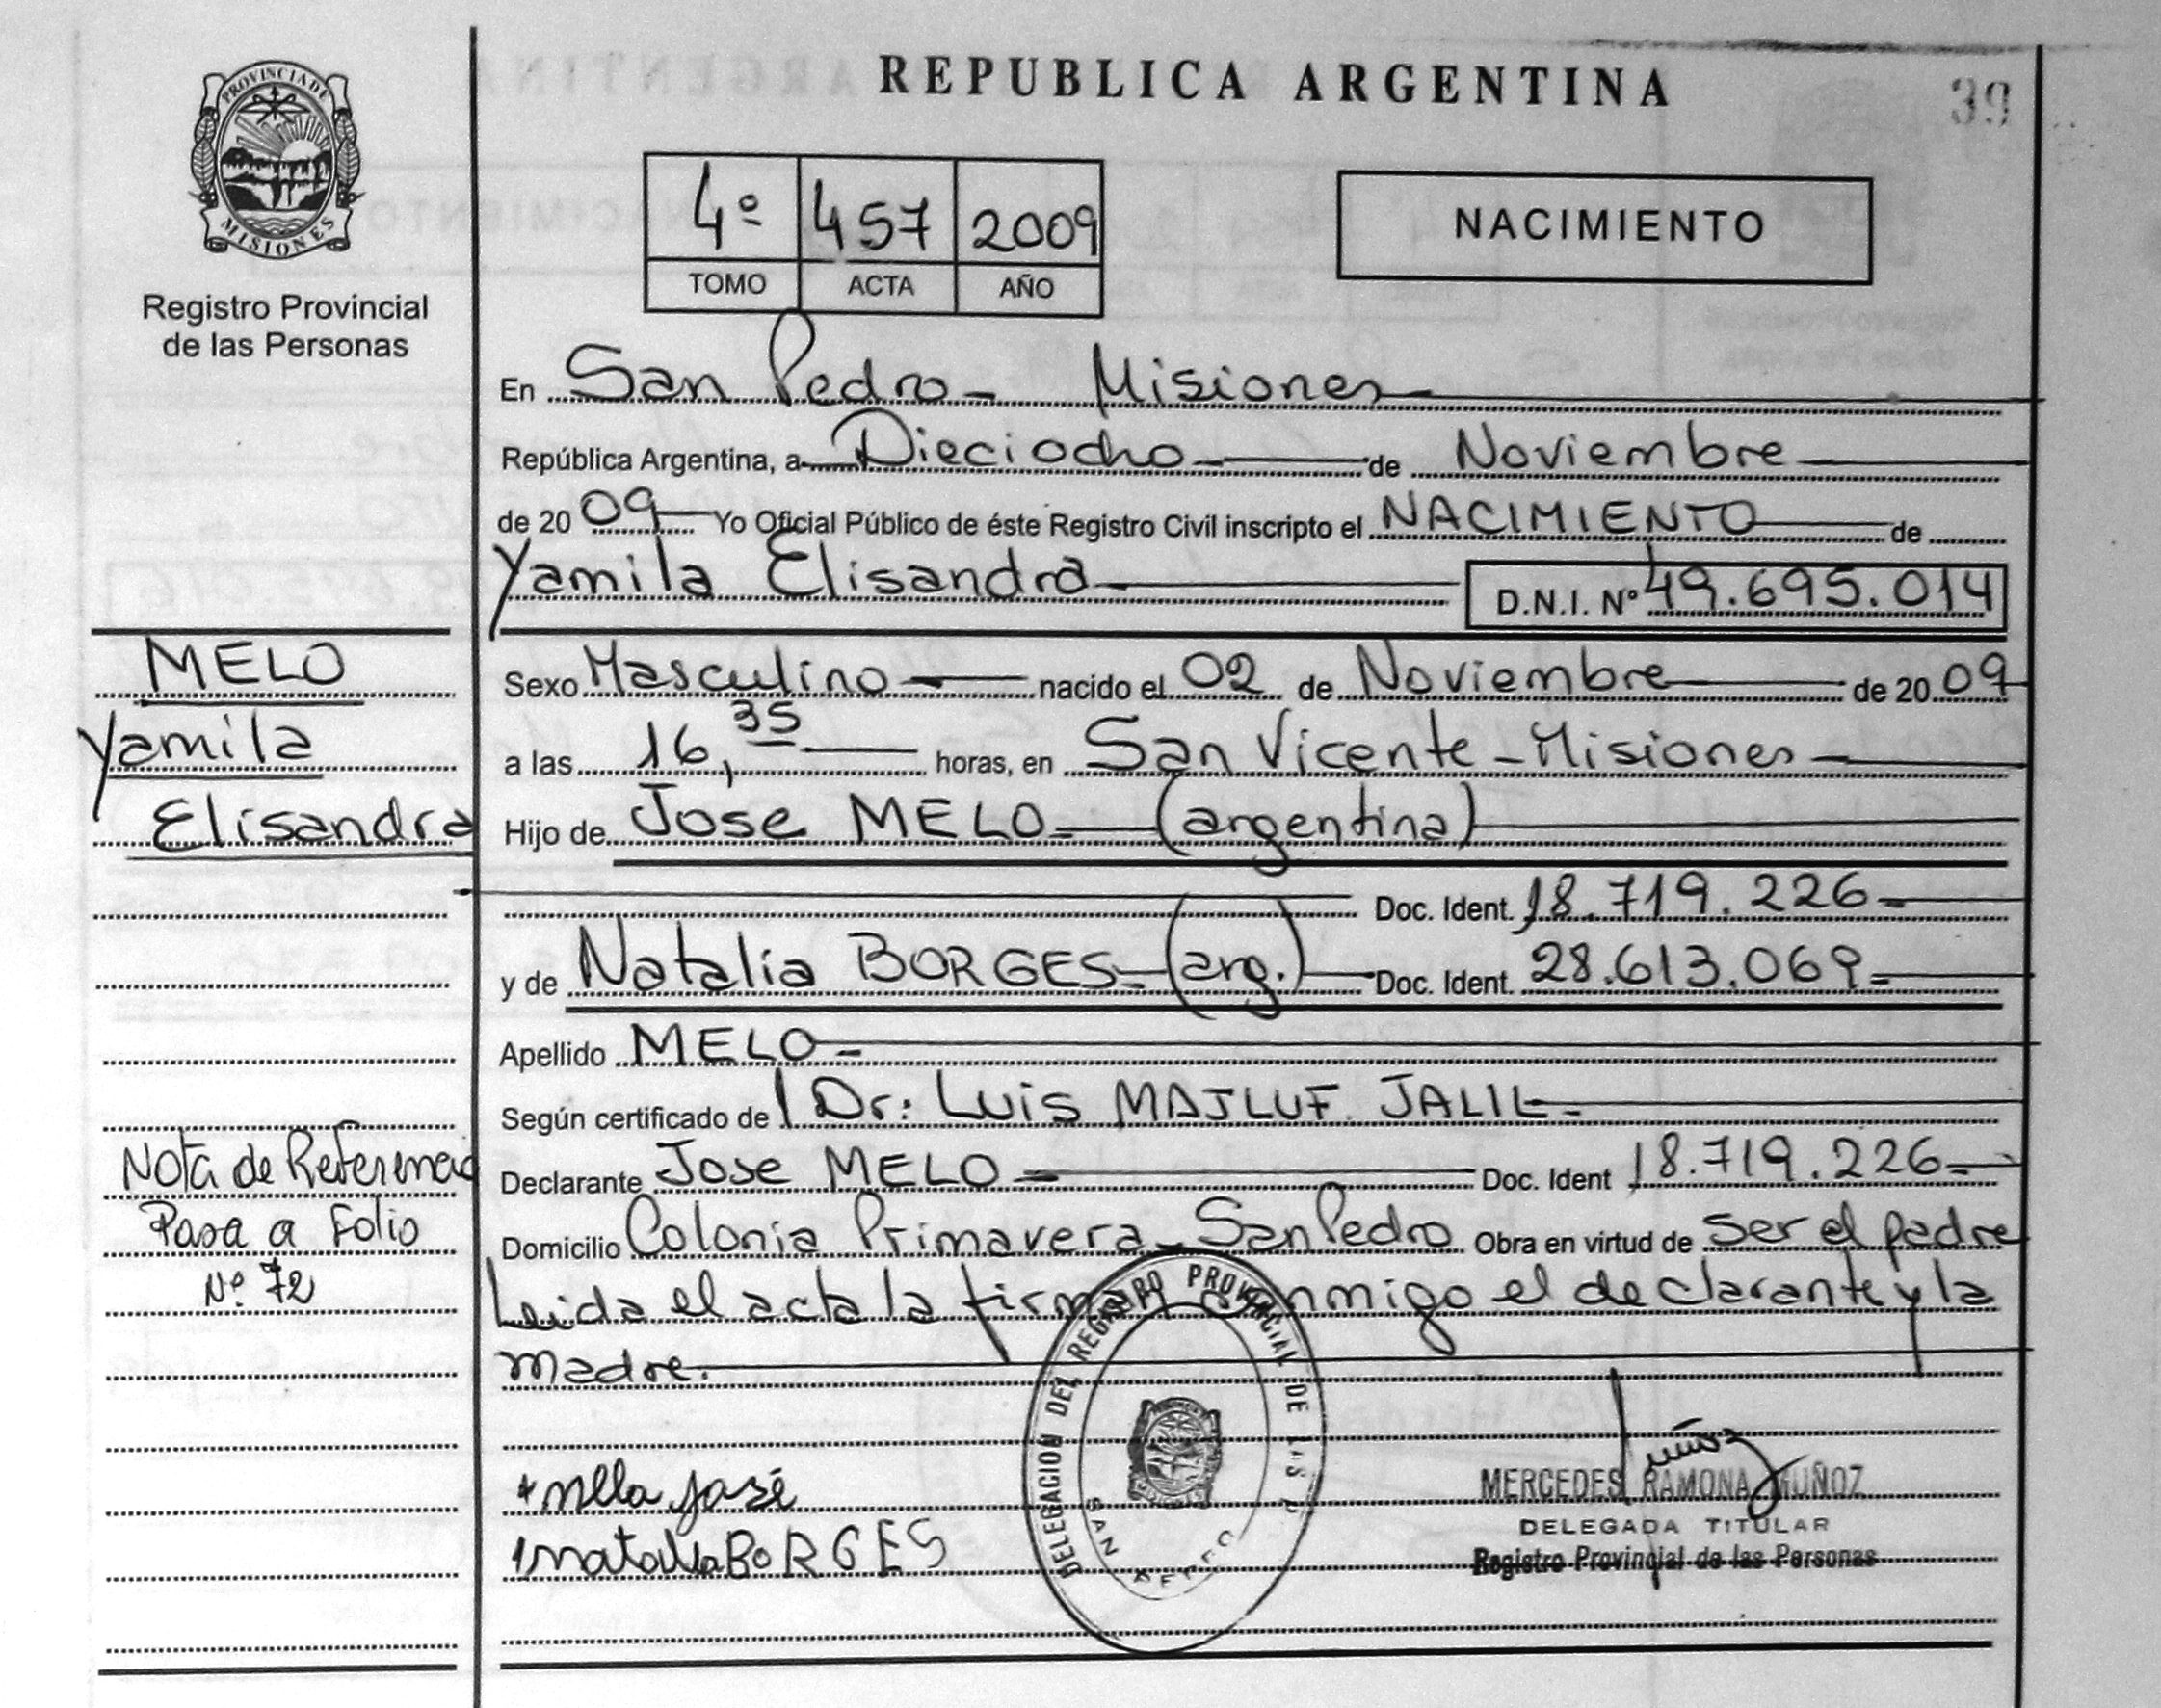 PROVINCIA DE
MISIONES
Registro Provincial
de las Personas
REPUBLICA ARGENTINA
39
4º 457 2009
TOMO ACTA AÑO
NACIMIENTO
En San Pedro - Misiones
República Argentina, a Dieciocho de Noviembre
de 20 09 Yo Oficial Público de éste Registro Civil inscripto el NACIMIENTO de
Yamila Elisandra D.N.I. Nº 49.695.014
MELO
Yamila
Elisandra
Sexo Masculino nacido el 02 de Noviembre de 20 09
a las 16,35 horas, en San Vicente - Misiones
Hijo de Jose MELO= (argentina)
Doc. Ident. 18.719.226=
y de Natalia BORGES= (arg.) Doc. Ident. 28.613.069=
Apellido MELO=
Según certificado de Dr: Luis MAJLUF JALIL=
Declarante Jose MELO= Doc. Ident 18.719.226=
Domicilio Colonia Primavera - San Pedro Obra en virtud de ser el padre
Leida el acta la firman conmigo el declarante y la
madre.
Nota de Referencia
Pasa a Folio
Nº 72
José
natalia BORGES
DELEGACION DEL REGISTRO PROVINCIAL DE LAS P
SAN PEDRO
Muñoz
MERCEDES RAMONA MUÑOZ
DELEGADA TITULAR
Registro Provincial de las Personas